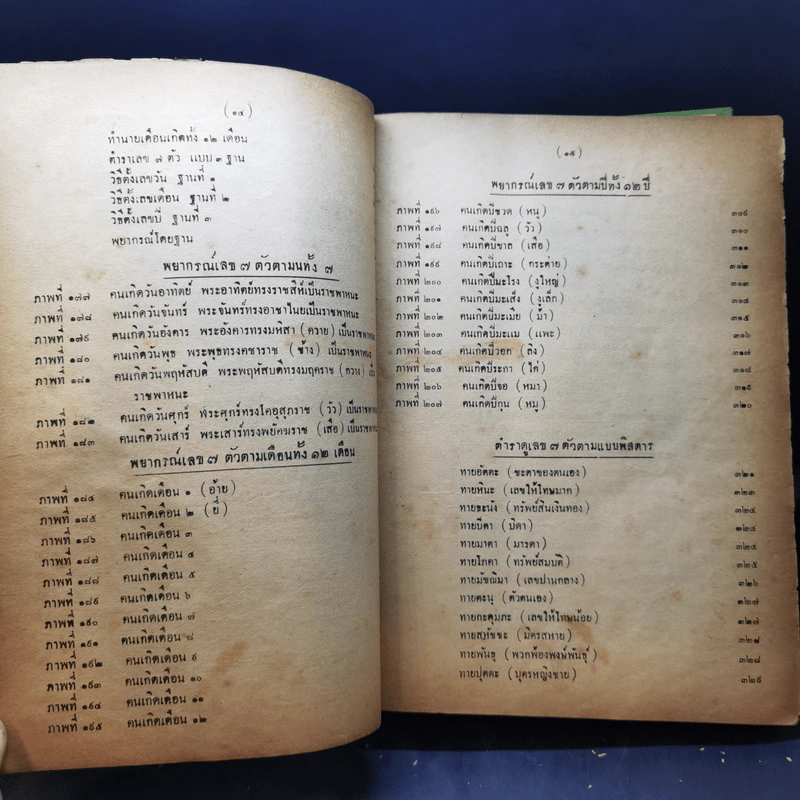 (๑๔)
ทำนายเดือนเกิดทั้ง ๑๒ เดือน
ตำราเลข ๗ ตัว แบบ ๓ ฐาน
วิธีตั้งเลขวัน ฐานที่ ๑
วิธีตั้งเลขเดือน ฐานที่ ๒
วิธีตั้งเลขปี ฐานที่ ๓
พยากรณ์โดยฐาน
พยากรณ์เลข ๗ ตัวตามนทั้ง ๗
ภาพที่ ๑๗๗ คนเกิดวันอาทิตย์ พระอาทิตย์ทรงราชสีห์เป็นราชพาหนะ
ภาพที่ ๑๗๘ คนเกิดวันจันทร์ พระจันทร์ทรงอาชาไนยเป็นราชพาหนะ
ภาพที่ ๑๗๙ คนเกิดวันอังคาร พระอังคารทรงมหิสา (ควาย) เป็นราชพาหนะ
ภาพที่ ๑๘๐ คนเกิดวันพุธ พระพุธทรงคชาราช (ช้าง) เป็นราชพาหนะ
ภาพที่ ๑๘๑ คนเกิดวันพฤหัสบดี พระพฤหัสบดีทรงมฤคราช (กวาง) เป็น
ราชพาหนะ
ภาพที่ ๑๘๒ คนเกิดวันศุกร์ พระศุกร์ทรงโคอุสุภราช (วัว) เป็นราชพาหนะ
ภาพที่ ๑๘๓ คนเกิดวันเสาร์ พระเสาร์ทรงพยัคฆราช (เสือ) เป็นราชพาหนะ
พยากรณ์เลข ๗ ตัวตามเดือนทั้ง ๑๒ เดือน
ภาพที่ ๑๘๔ คนเกิดเดือน ๑ (อ้าย)
ภาพที่ ๑๘๕ คนเกิดเดือน ๒ (ยี่)
ภาพที่ ๑๘๖ คนเกิดเดือน ๓
ภาพที่ ๑๘๗ คนเกิดเดือน ๔
ภาพที่ ๑๘๘ คนเกิดเดือน ๕
ภาพที่ ๑๘๙ คนเกิดเดือน ๖
ภาพที่ ๑๙๐ คนเกิดเดือน ๗
ภาพที่ ๑๙๑ คนเกิดเดือน ๘
ภาพที่ ๑๙๒ คนเกิดเดือน ๙
ภาพที่ ๑๙๓ คนเกิดเดือน ๑๐
ภาพที่ ๑๙๔ คนเกิดเดือน ๑๑
ภาพที่ ๑๙๕ คนเกิดเดือน ๑๒
(๑๕)
พยากรณ์เลข ๗ ตัวตามปีทั้ง ๑๒ ปี
ภาพที่ ๑๙๖ คนเกิดปีชวด (หนู) ๓๐๙
ภาพที่ ๑๙๗ คนเกิดปีฉลู (วัว) ๓๑๐
ภาพที่ ๑๙๘ คนเกิดปีขาล (เสือ) ๓๑๑
ภาพที่ ๑๙๙ คนเกิดปีเถาะ (กระต่าย) ๓๑๒
ภาพที่ ๒๐๐ คนเกิดปีมะโรง (งูใหญ่) ๓๑๓
ภาพที่ ๒๐๑ คนเกิดปีมะเส็ง (งูเล็ก) ๓๑๔
ภาพที่ ๒๐๒ คนเกิดปีมะเมีย (ม้า) ๓๑๕
ภาพที่ ๒๐๓ คนเกิดปีมะแม (แพะ) ๓๑๖
ภาพที่ ๒๐๔ คนเกิดปีวอก (ลิง) ๓๑๗
ภาพที่ ๒๐๕ คนเกิดปีระกา (ไก่)
ภาพที่ ๒๐๖ คนเกิดปีจอ (หมา)
ภาพที่ ๒๐๗ คนเกิดปีกุน (หมู) ๓๒๐
ตำราดูเลข ๗ ตัวตามแบบพิสดาร
ทายอัตตะ (ชะตาของตนเอง) ๓๒๑
ทายหินะ (เลขให้โทษมาก) ๓๒๓
ทายธะนัง (ทรัพย์สินเงินทอง) ๓๒๔
ทายปิตา (บิดา) ๓๒๔
ทายมาตา (มารดา) ๓๒๔
ทายโภคา (ทรัพย์สมบัติ) ๓๒๕
ทายมัชฌิมา (เลขปานกลาง) ๓๒๖
ทายตะนุ (ตัวตนเอง) ๓๒๗
ทายกะดุมภะ (เลขให้โทษน้อย) ๓๒๗
ทายสหัชชะ (มิตรสหาย)
ทายพันธุ (พวกพ้องพงษ์พันธุ์) ๓๒๘
ทายปุตตะ (บุตรหญิงชาย) ๓๒๙